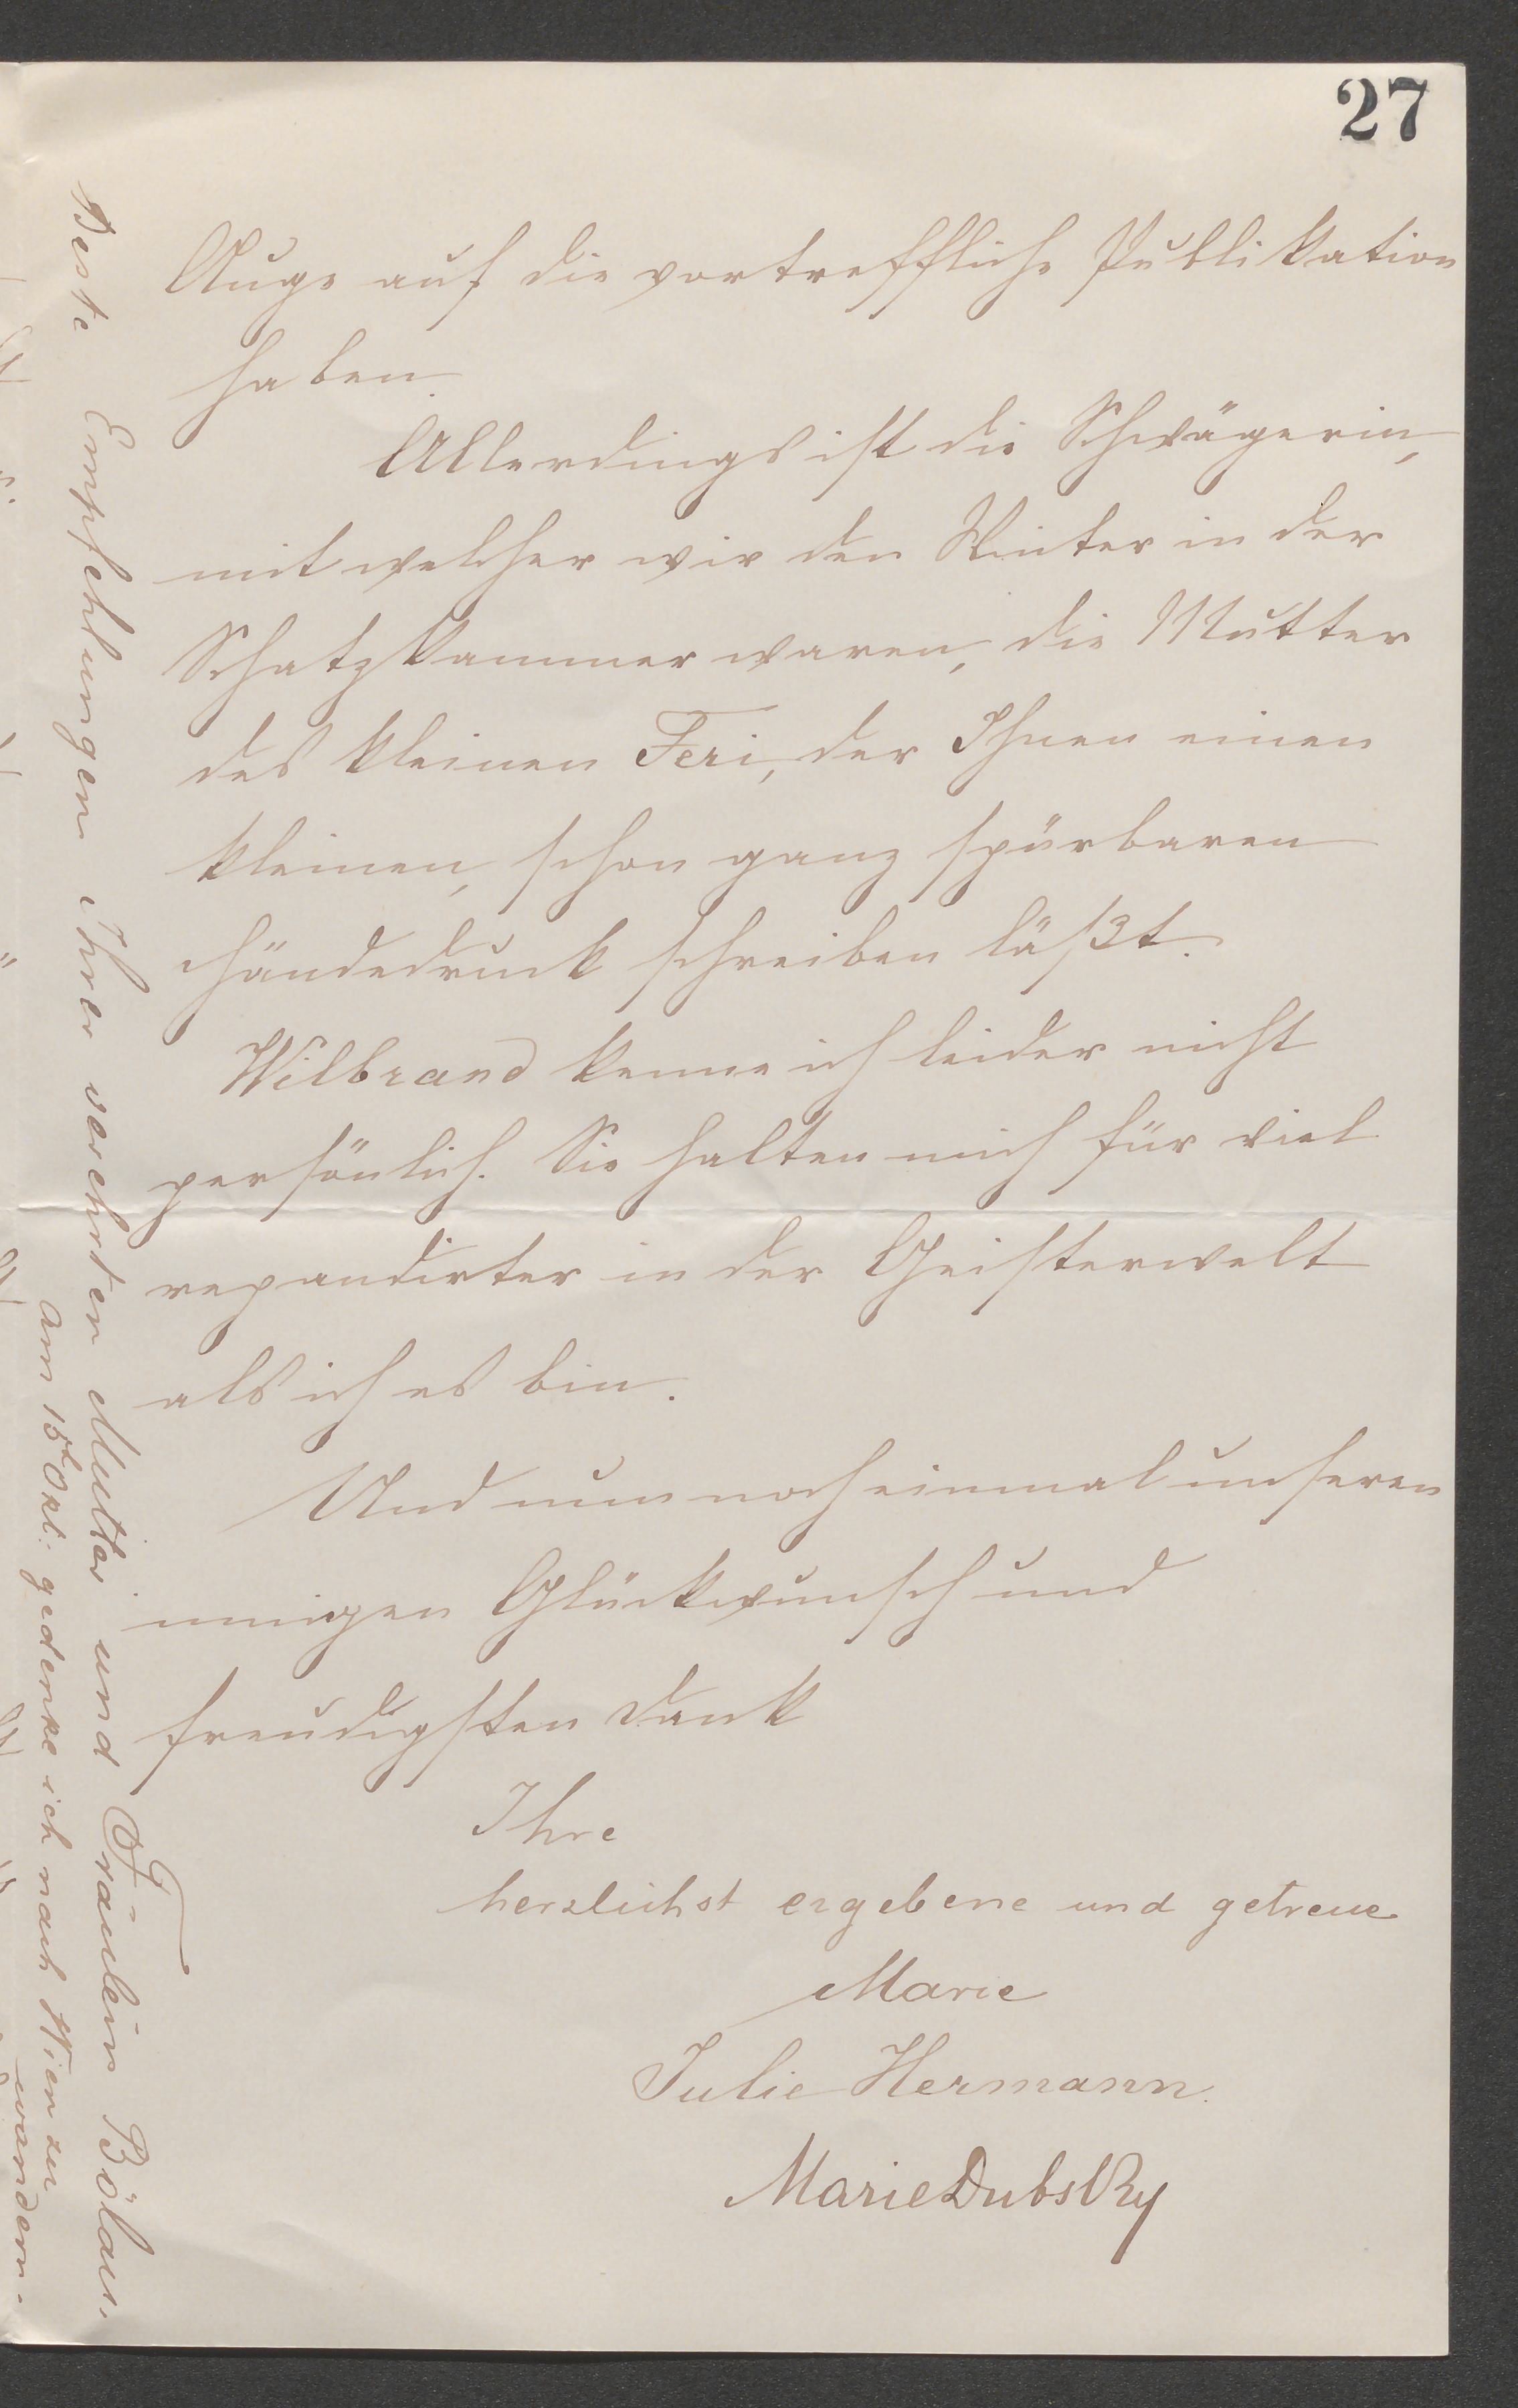 27
Auge auf die vortreffliche Publikation
haben.
Allerdings ist die Schwägerin,
mit welcher wir den Winter in der
Schatzkammer waren, die Mutter
des kleinen Feri, der Ihnen einen
kleinen, schon ganz spürbaren
Händedruck schreiben läßt.
Wilbrand kenne ich leider nicht
persönlich. Sie halten mich für viel
repandirter in der Geisterwelt
als ich es bin.
Und nun noch einmal unseren
innigen Glückwunsch und
freudigsten Dank
Ihre
herzlichst ergebene und getreue
Marie
Julie Hermann.
Marie Dubsky
Beste Empfehlungen Ihrer verehrten Mutter und Fräulein Bölau.
Am 15t Okt: gedenke ich nach Wien zu
wandern.